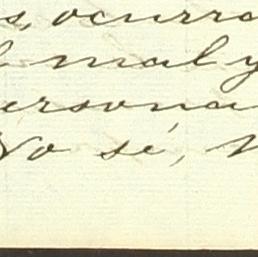 s, ocurra
l mal y
ersona
No sé, n